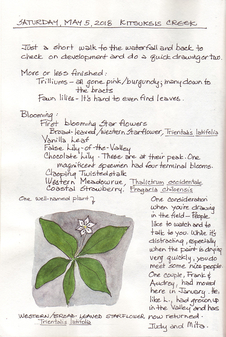 SATURDAY, MAY 5, 2018 KITSUCKSIS CREEK
Just a short walk to the waterfall and back to
check on development and do a quick drawing or two.
More or less finished:
Trilliums - all gone pink/burgundy; many down to
the bracts
Fawn lilies - It's hard to even find leaves.
Blooming:
First blooming Star flowers
Broad-leaved/Western Starflower, Trientalis latifolia
Vanilla Leaf
False Lily-of-the-Valley
Chocolate Lily - These are at their peak. One
magnificent specimen had four terminal blooms.
Clasping Twistedstalk
Western Meadowrue, Thalictrum occidentale
Coastal Strawberry, Fragaria chiloensis
One well-named plant
One consideration
when you're drawing
in the field - People
like to watch and to
talk to you. While it's
distracting, especially
when the paint is drying
very quickly, you do
meet some nice people.
One couple, Frank &
Audrey, had moved
here in January. He,
like L., had grown up
in the Valley and has
now returned.
Judy and Mits.
WESTERN/BROAD-LEAVED STARFLOWER
Trientalis latifolia